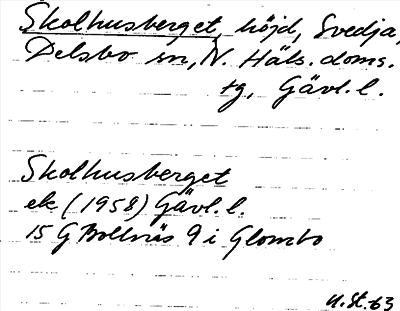 Skolhusberget, höjd, Svedja,
Delsbo sn, N. Häls. doms.
tg, Gävl. l.
Skolhusberget
ek (1958) Gävl. l.
15 G Bollnäs 9 i Glombo
U.St.-63